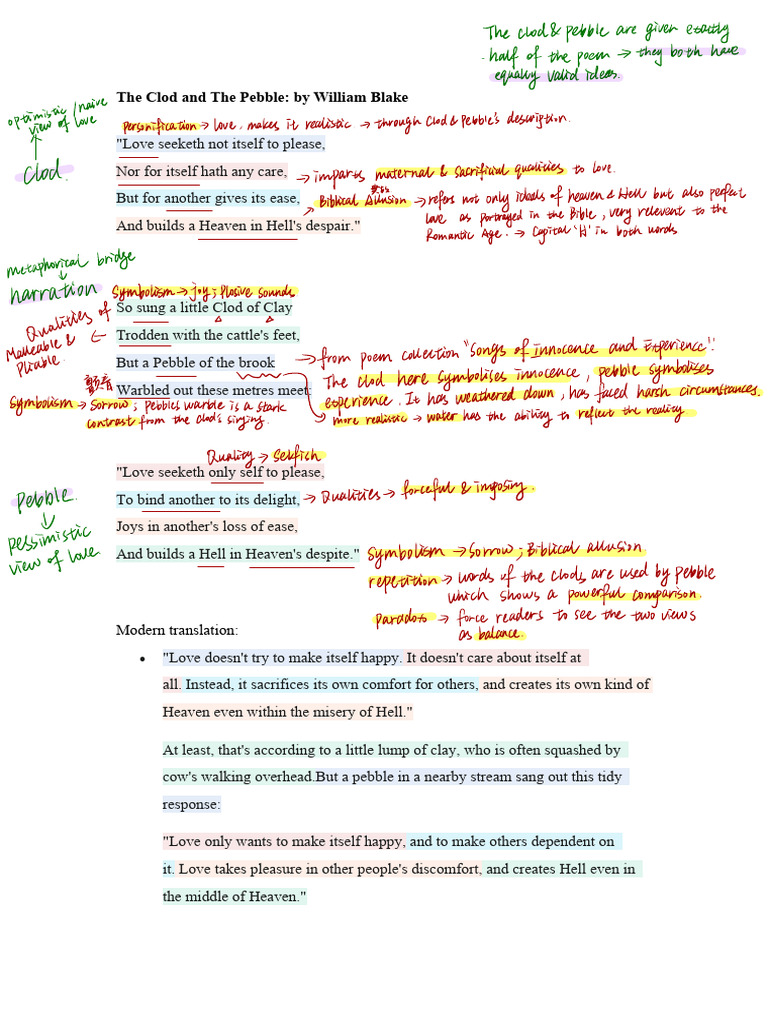 The clod & pebble are given exactly
half of the poem → they both have
equally valid ideas.
The Clod and The Pebble: by William Blake
optimistic / naive
view of love
Clod.
personification → love, makes it realistic → through Clod & Pebble's description.
"Love seeketh not itself to please,
Nor for itself hath any care,
→ imparts maternal & sacrificial qualities to love.
But for another gives its ease,
Biblical Allusion → refers not only ideals of heaven & Hell but also perfect
love as portrayed in the Bible, very relevant to the
Romantic Age. → Capital 'H' in both words
And builds a Heaven in Hell's despair."
metaphorical bridge
narration
Symbolism → joy; Plosive sounds
So sung a little Clod of Clay
Qualities of
Malleable &
Pliable.
Trodden with the cattle's feet,
But a Pebble of the brook
→ from poem collection "Songs of Innocence and Experience".
The clod here symbolises innocence, pebble symbolises
experience. It has weathered down, has faced harsh circumstances.
more realistic → water has the ability to reflect the reality
颤音
Warbled out these metres meet:
Symbolism → Sorrow; Pebbles warble is a stark
contrast from the clod's singing.
Quality → Selfish
"Love seeketh only self to please,
To bind another to its delight,
→ Qualities → forceful & imposing.
Pebble.
pessimistic
view of love
Joys in another's loss of ease,
And builds a Hell in Heaven's despite."
Symbolism → Sorrow; Biblical allusion.
repetition → words of the clods are used by pebble
which shows a powerful comparison.
paradox → force readers to see the two views
as balance.
Modern translation:
• "Love doesn't try to make itself happy. It doesn't care about itself at
all. Instead, it sacrifices its own comfort for others, and creates its own kind of
Heaven even within the misery of Hell."
At least, that's according to a little lump of clay, who is often squashed by
cow's walking overhead.But a pebble in a nearby stream sang out this tidy
response:
"Love only wants to make itself happy, and to make others dependent on
it. Love takes pleasure in other people's discomfort, and creates Hell even in
the middle of Heaven."